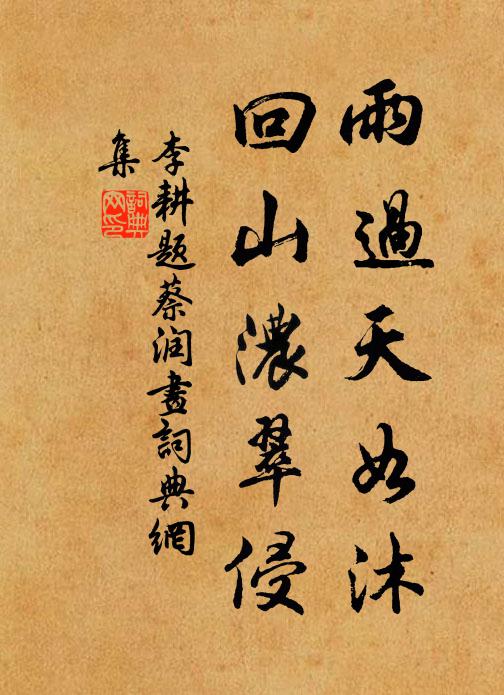 雨過天如沐
回山濃翠侵
李耕题蔡润畫詞典網
集
詞典網印